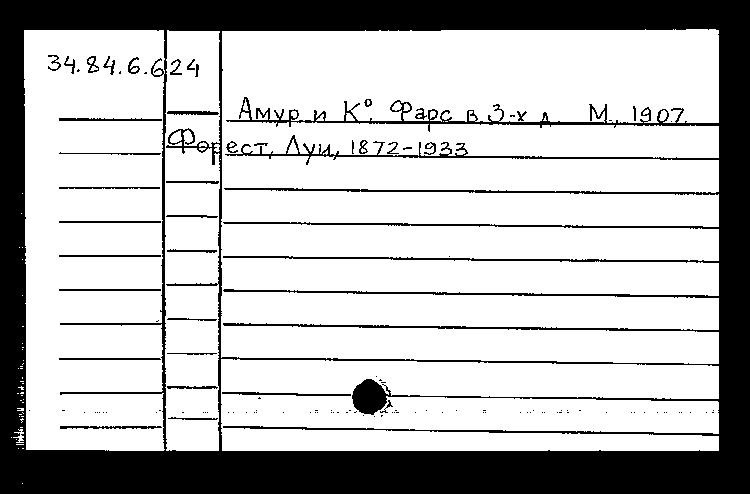 34.84.6.624
Амур и К°. Фарс в 3-х д. М., 1907
Форест, Луи, 1872-1933